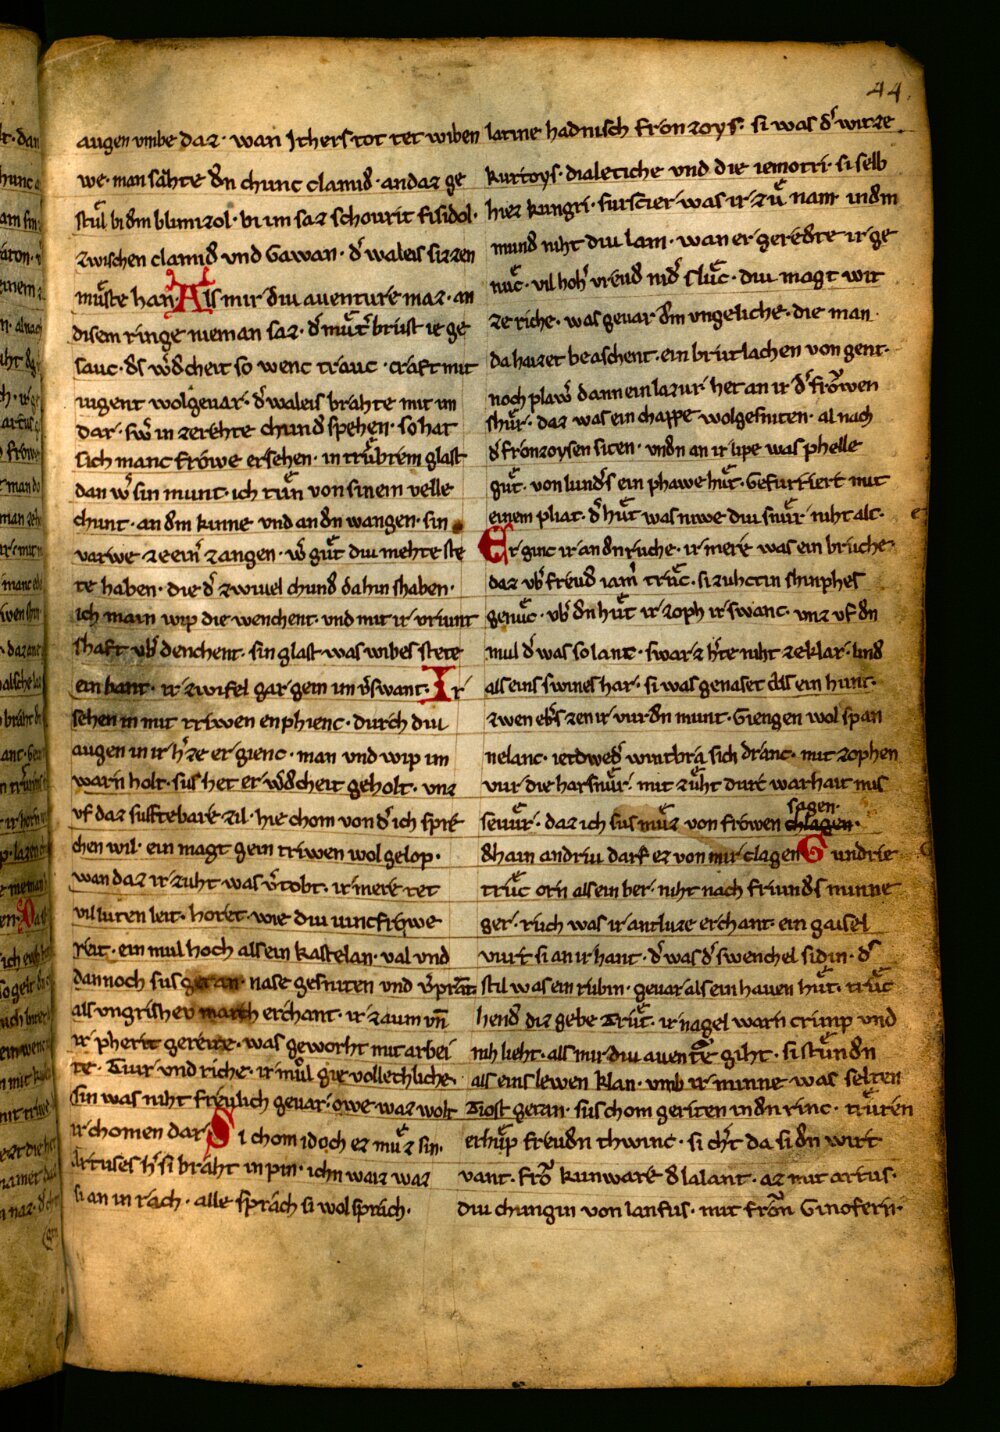 44.
augen vmbe daz · wan Jthers tot tet wiben
we · man sahte dn chunc clamid · an daz ge
stůl bi dm blumzol · bi im saz schourit fisidol ·
zwischen clamid vnd Gawan · d͛ waleis sizzen
můste han · Als mir diu auenture maz · an
disem ringe nieman saz · d͛ můt͛ brust ie ge
sauc · ds w͛dcheit so wenc trauc · craft mit
iugent wolgeuar · d͛ waleis brahte mit im
dar · sw͛ in zerehte chund spehen · so hat
sich manc frowe ersehen · in trůbrem glast
dan w͛ sin munt · ich tůn von sinem velle
chunt · an dm kinne vnd an dn wangen · sin
varwe zeein͛ zangen · w͛ gůt diu mehte ste
te haben · die d͛ zwiuel chund dahin shaben ·
ich main wip die wenchent · vnd mit ir vriunt
shaft vb͛ denchent · sin glast was wibes stete
ein bant · ir zwifel gar gein im v͛swant · Ir
sehen in mit triwen enphienc · durch diu
augen in ir h͛ze er gienc · man vnd wip im
warn holt · sus het er w͛dcheit geholt · vnz
vf daz suftebare zil · hie chom von d͛ ich spre
chen wil · ein magt gein triwen wol gelop ·
wan daz ir zuht was v͛tobt · ir mere tet
vil luten leit · horet · wie diu iuncfrowe
reit · ein mul hoch als ein kastelan · val und
dannoch sus getan · nase gesniten vnd v͛prant
als vngrishev march erchant · ir zaum vn̄
ir pherit gereite · was geworht mit arbei
te · Tiuir vnd riche · ir můl gie vollechliche ·
sin was niht freulich geuar · owe waz wolt
ir chomen dar · Si chom idoch ez můz sin ·
Artuses h͛ si braht in pin · ichn waiz waz
si an in rach · alle sprach si wol sprach ·
latine hadnisch fronzoys · si was d͛ witze
kurtoys · dialetiche vnd die iemotri · si selb
hiez kungri · surscier was ir zů nam · in dm
mund niht diu lam · wan er geredte ir ge
nůc · vil hoh͛ vreud nid͛ slůc · diu magt wit
ze riche · was geuar dm vngeliche · die man
da haizet beaschent · ein brutlachen von gent ·
noch plaw͛ dann ein lazur · het an ir d͛ frowen
shůr · daz was ein chappe wolgesniten · al nach
d͛ fronzoysen siten · vndn an ir lipe was phelle
gůt · von lund͛s ein phawe hůt · Gefurriert mit
einem pliat · d͛ hůt was niwe diu snůr niht alt ·
Er ginc ir an dn ruche · ir mere was ein bruche
daz vb͛ freud iam͛ trůc · si zuhctin shinphes
genůc · vb͛ dn hůt ir zoph ir swanc · vnz vf dn
mul d͛ was so lanc · swarz h͛te niht ze klar · lind
als eins swines har · si was genaset als ein hunt ·
zwen eb͛s zen ir vur dn munt · Giengen wol span
nelanc · ietdwed͛ wintbra sich dranc · mit zophen
vur die harsnůr · mit zůht durc warhait mis
sevůr · daz ich sus můz von frowen chlagen ·
sagen ·
dhain andriu darf ez von mir clagen Gundrie
trůc orn als ein ber · niht nach friunds minne
ger · ruch was ir antluze erchant · ein gaisel
vurt si an ir hant · d͛ was d͛ swenchel sidin · d͛
stil was ein rubin · geuar als ein hauen hůt · trůc
hend diz gebe Trůt · ir nagel warn crimp vnd
nih lieht · als mir diu auentůre giht · si stůndn
als eins lewen klan · vmb ir minne was selten
Tiost getan · sus chom geriten in dn rinc · trůren
erhůp freudn thwinc · si ch͛t da si dn wirt
vant · fro kunware d lalant · az mit artus ·
diu chungin von ianfus · mit fron Ginofern ·